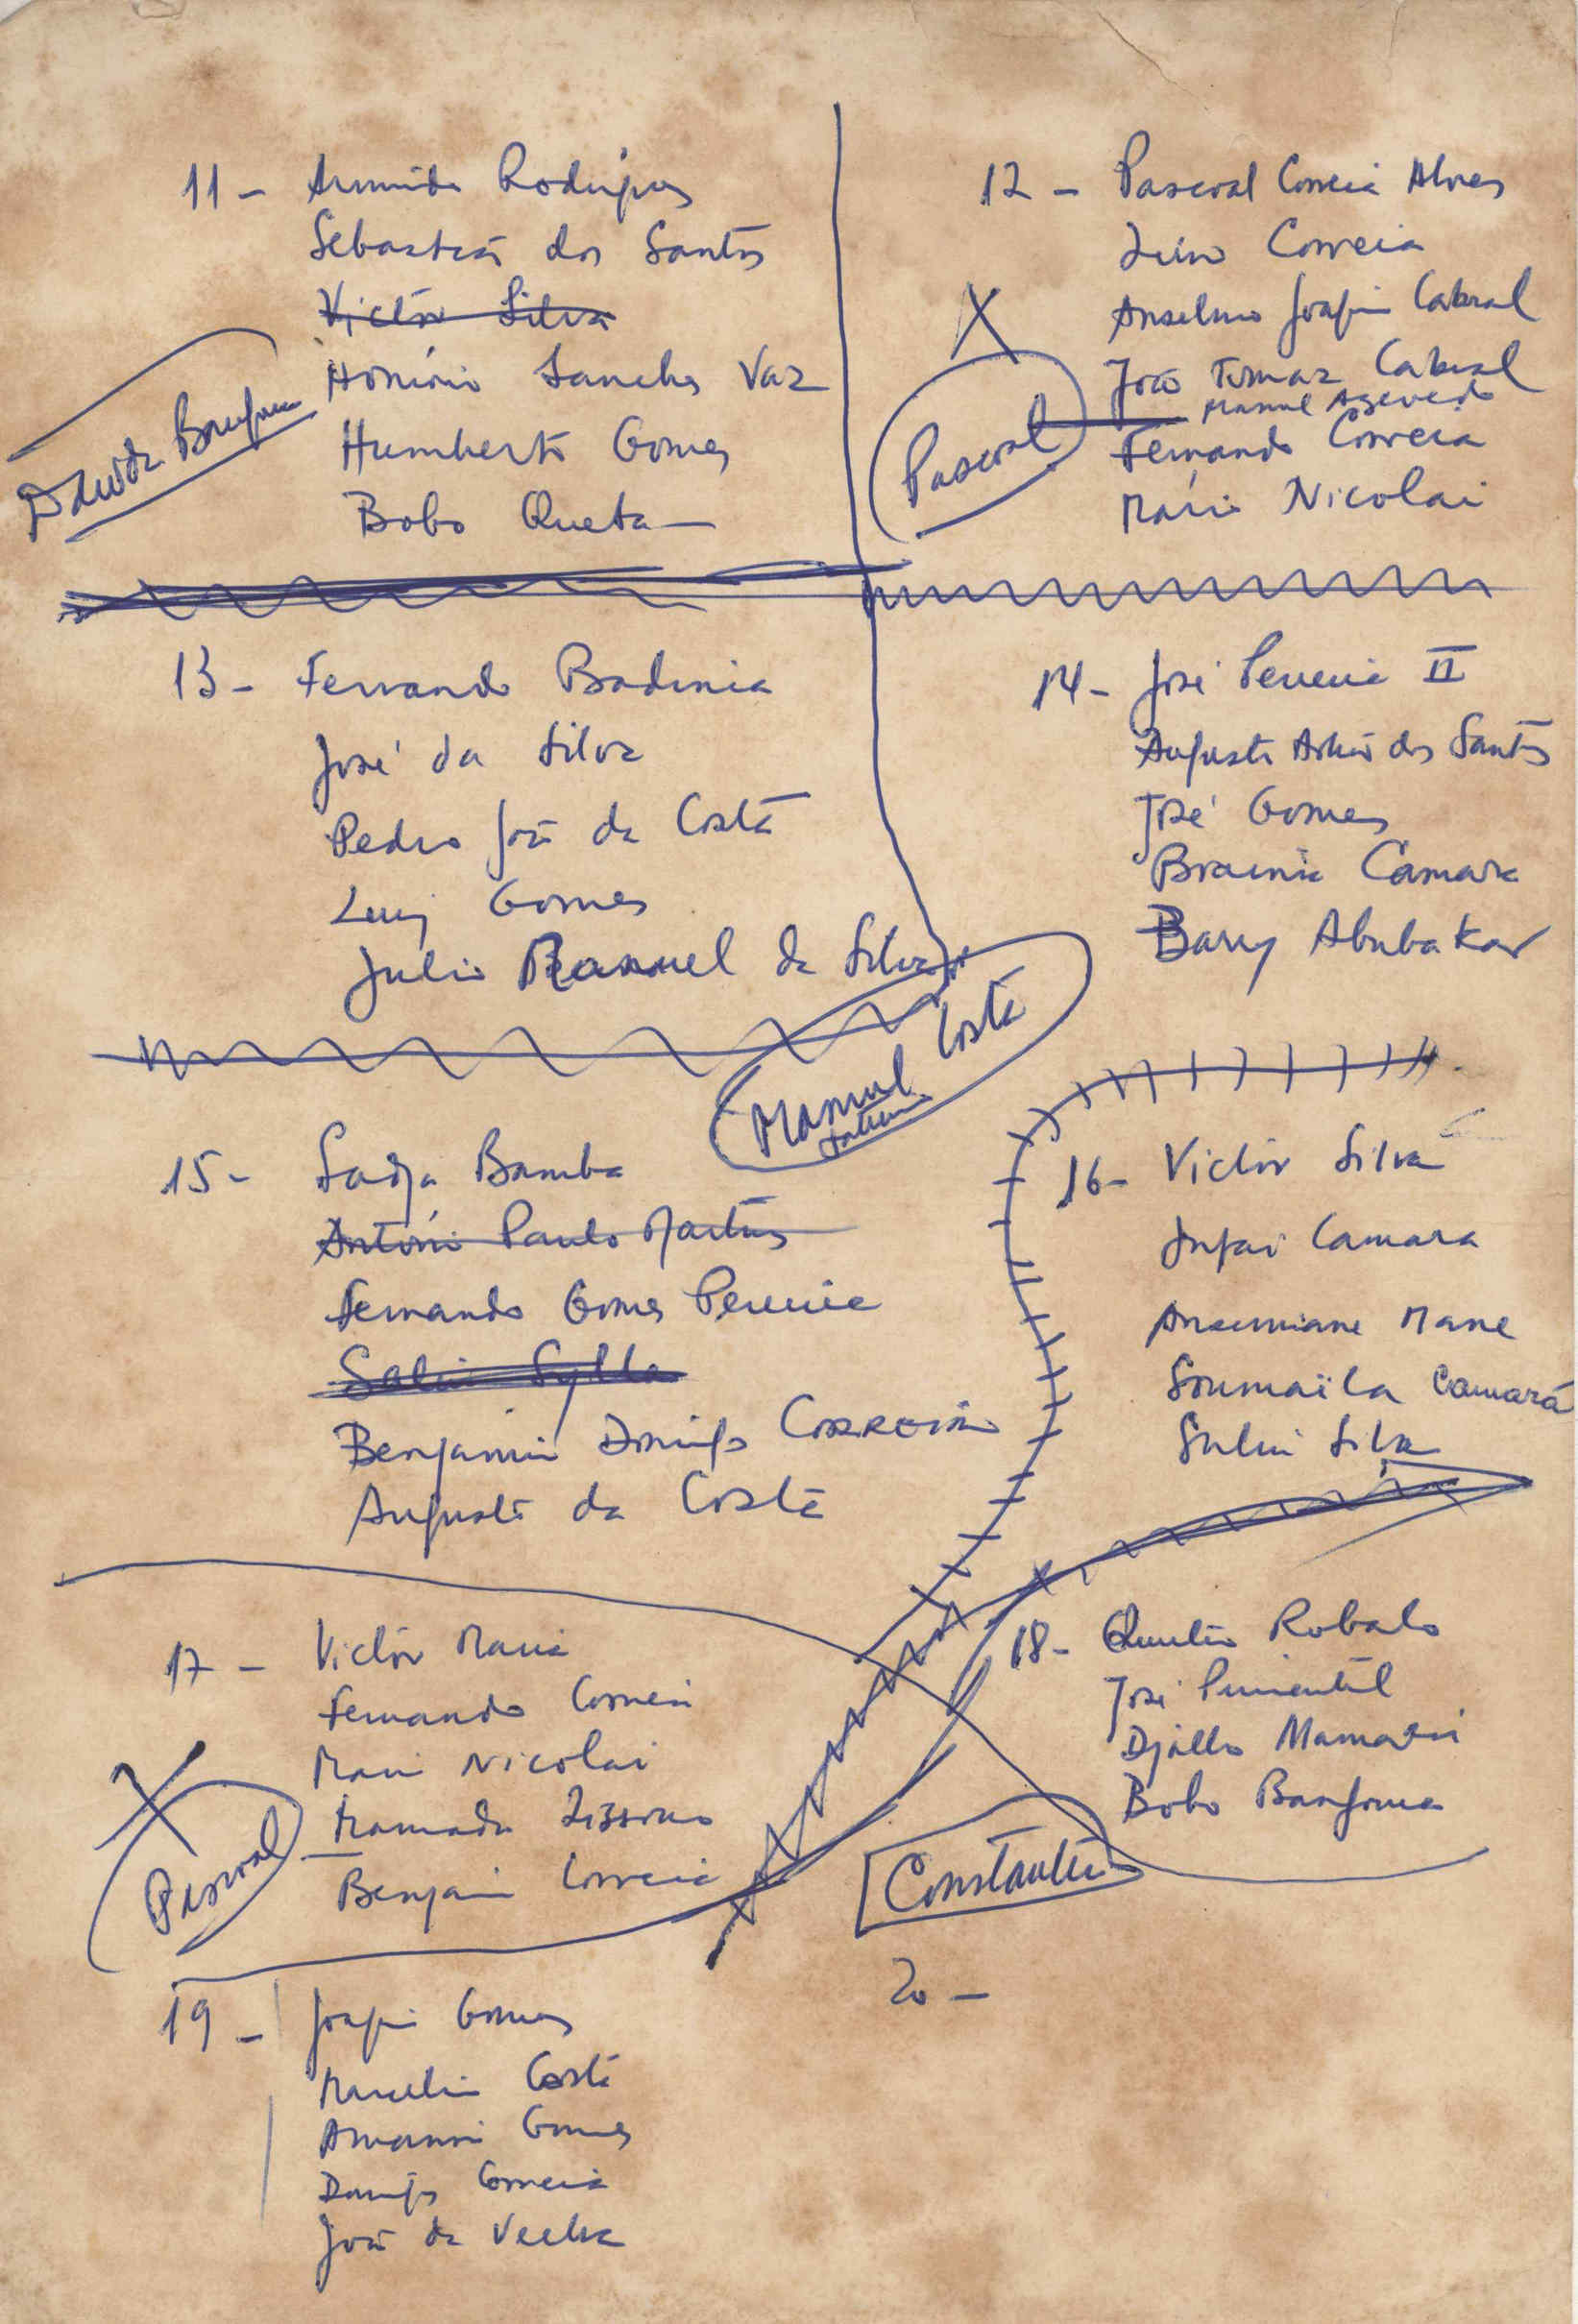 11 - Arminda Rodrigues
Sebastião dos Santos
Victor Silva
Honório Sanches Vaz
Humberto Gomes
Bobo Queta
Davida
12 - Pascoal Correia Alves
Lino Correia
Anselmo Joaquim Cabral
João Tomaz Cabral
Manuel Azevedo
Fernando Correia
Mário Nicolai
X
Pascoal
13 - Fernando Badinia
José da Silva
Pedro João da Costa
Luiz Gomes
Julio Manuel da Silva
14 - José Pereira II
Augusto dos Santos
José Gomes
Braima Camara
Barry Abubakar
Manuel Costa
15 - Sadja Bamba
António Paulo Martins
Fernando Gomes Pereira
Salia Sylla
Benjamin Domingos Correia
Augusto da Costa
16 - Victor Silva
Infai Camara
Ansumane Mane
Soumaïla Camará
Silva
17 - Victor Maria
Fernando Correia
Mario Nicolai
Mamadu
Benjamin Correia
X
Pascoal
18 - Quintino Robalo
José Pimentel
Djallo Mamadú
Bobo Bangoura
Constantino
19 - Joaquim Gomes
Marcelino Costa
Gomes
Domingos Correia
João da Veelha
20 -